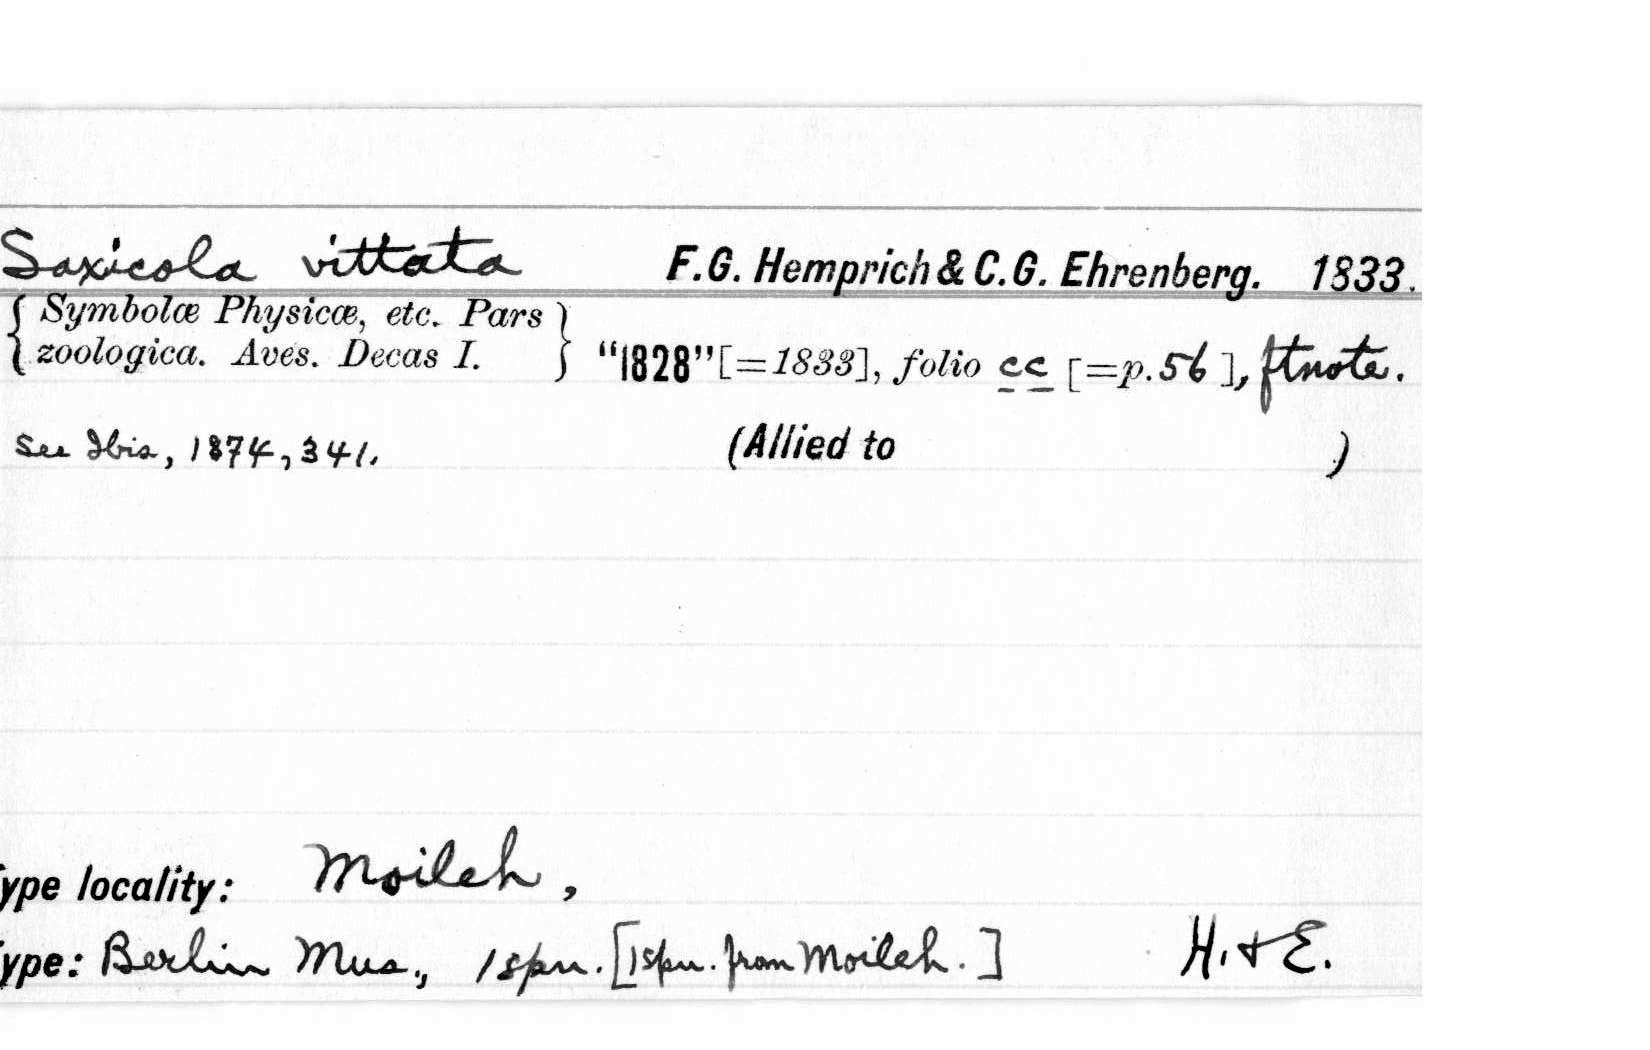 Saxicola vittata F.G. Hemprich & C.G. Ehrenberg. 1833.
{ Symbolæ Physicæ, etc. Pars }
{ zoologica. Aves. Decas I. } "1828" [=1833], folio cc [=p. 56], ftnote.
See Ibis, 1874, 341. (Allied to )
ype locality: Moileh,
ype: Berlin Mus., 1 spn. [1 spn. from Moileh.] H. & E.